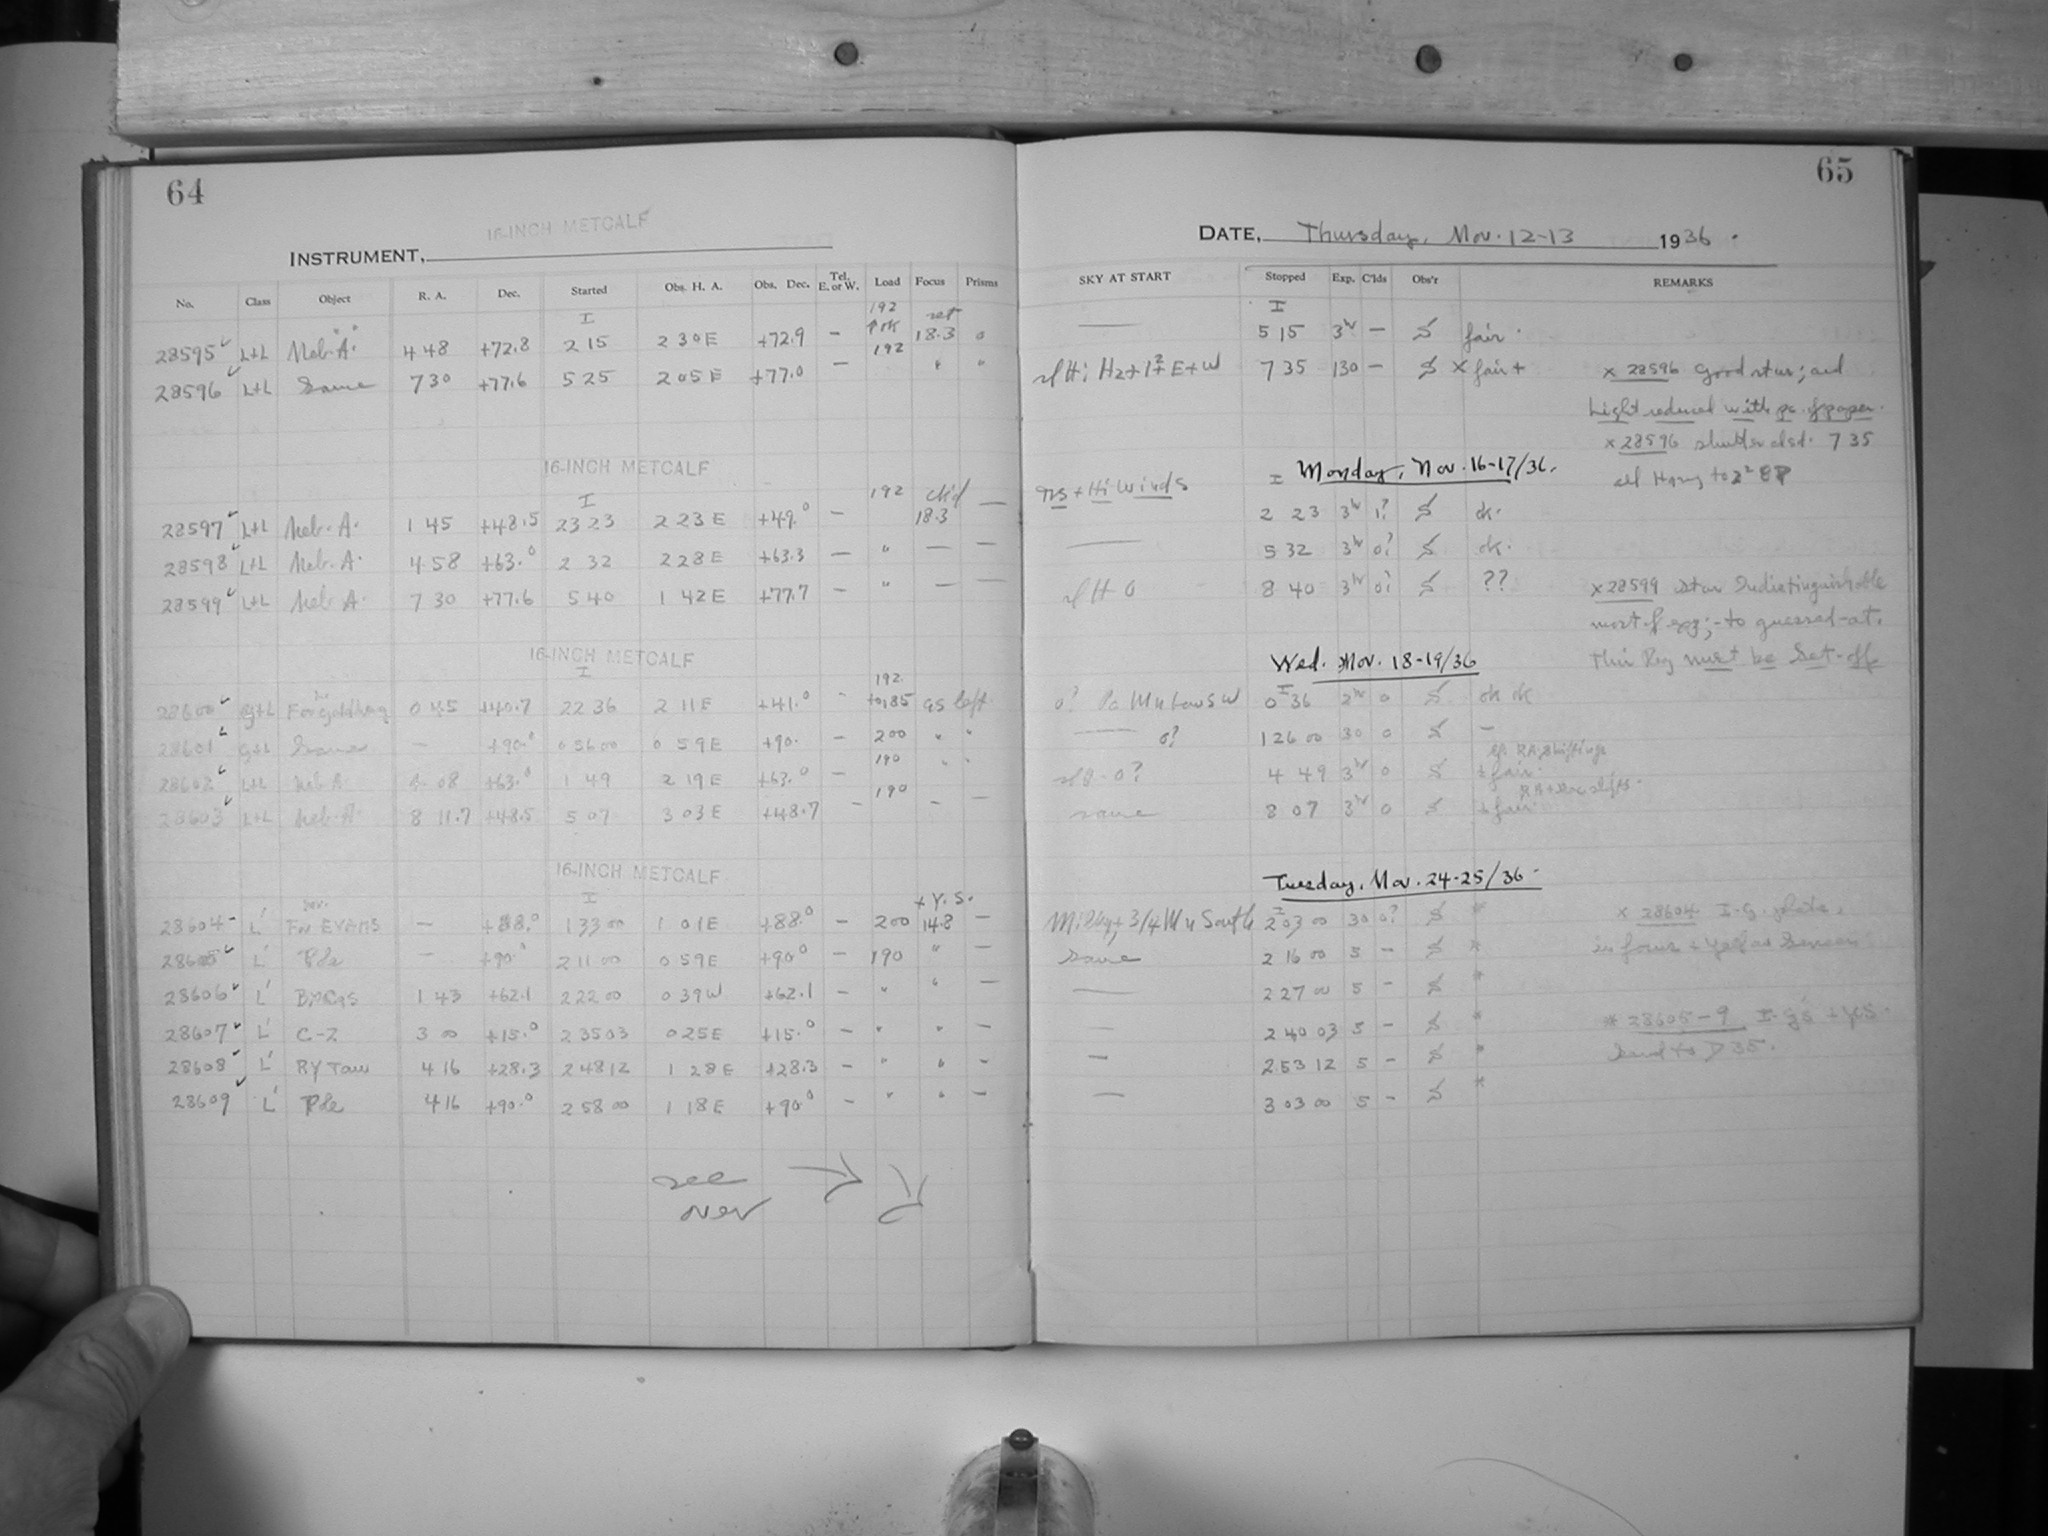 64
16-INCH METCALF
INSTRUMENT,
No. Class Object R. A. Dec. Started Obs. H. A. Obs. Dec. Tel. E. or W. Load Focus Prisms
I 192 set
28595 L+L Neb. A. 4 48 +72.8 2 15 2 30 E +72.9 - ok 18.3 0
192
28596 L+L Same 7 30 +77.6 5 25 2 05 E +77.0 - " "
16-INCH METCALF
I 192 ck'd —
28597 L+L Neb. A. 1 45 +48.5 23 23 2 23 E +49.0 - 18.3
28598 L+L Neb. A. 4 58 +63.0 2 32 2 28 E +63.3 - " — —
28599 L+L Neb A. 7 30 +77.6 5 40 1 42 E +77.7 - " — —
16-INCH METCALF
I 192
28600 0 45 +40.7 22 36 2 11 E +41.0 - as left
28601 Same - +90.0 0 56 00 0 59 E +90. - 200 " "
190
28602 L+L Neb A 08 +63.0 1 49 2 19 E +63.0 - " "
190
28603 L+L Neb. A. 8 11.7 +48.5 5 07 3 03 E +48.7 - - -
16-INCH METCALF
I + Y. S.
28604 L' For EVANS — +88.0 1 33 00 1 01 E +88.0 - 200 14.8 -
28605 L' Pole — +90.0 2 11 00 0 59 E +90.0 - 190 " -
28606 L' 1 43 +62.1 2 22 00 0 39 W +62.1 - " " -
28607 L' C-Z 3 00 +15.0 2 35 03 0 25 E +15.0 - " " -
28608 L' RY Tau 4 16 +28.3 2 48 12 1 28 E +28.3 - " " -
28609 L' Pole 4 16 +90.0 2 58 00 1 18 E +90.0 - " " -
see
over
65
DATE, Thursday, Nov. 12-13 1936.
SKY AT START Stopped Exp. C'lds Obs'r REMARKS
I
— 5 15 3hr - S fair.
E+W 7 35 130 - S x fair+ x 28596 Good star; and
Light reduced with pc. of paper.
x 28596 shutter clsd. 7 35
I Monday, Nov. 16-17/36.
+ Hi Winds 2 23 3hr 1? S ok.
— 5 32 3hr 0? S ok.
8 40 3hr 0? S ?? x 28599 star Indistinguishable
most of exp; - to guessed-at.
This Reg must be Set-off
Wed. Nov. 18-19/36
I
0? 0 36 2hr 0 S ok ok
— 0? 1 26 00 30 0 S —
0? 4 49 3hr 0 S fair.
same 8 07 3hr 0 S fair.
Tuesday, Nov. 24-25/36.
I
Milky, + 3/4 Mn South 2 03 00 30 0? S * x 28604 I.G. plate,
in focus + Yellow Screen
Same 2 16 00 5 - S *
— 2 27 00 5 - S *
— 2 40 03 5 - S * * 28605-9 I-G's + YSS.
— 2 53 12 5 - S *
— 3 03 00 5 - S *